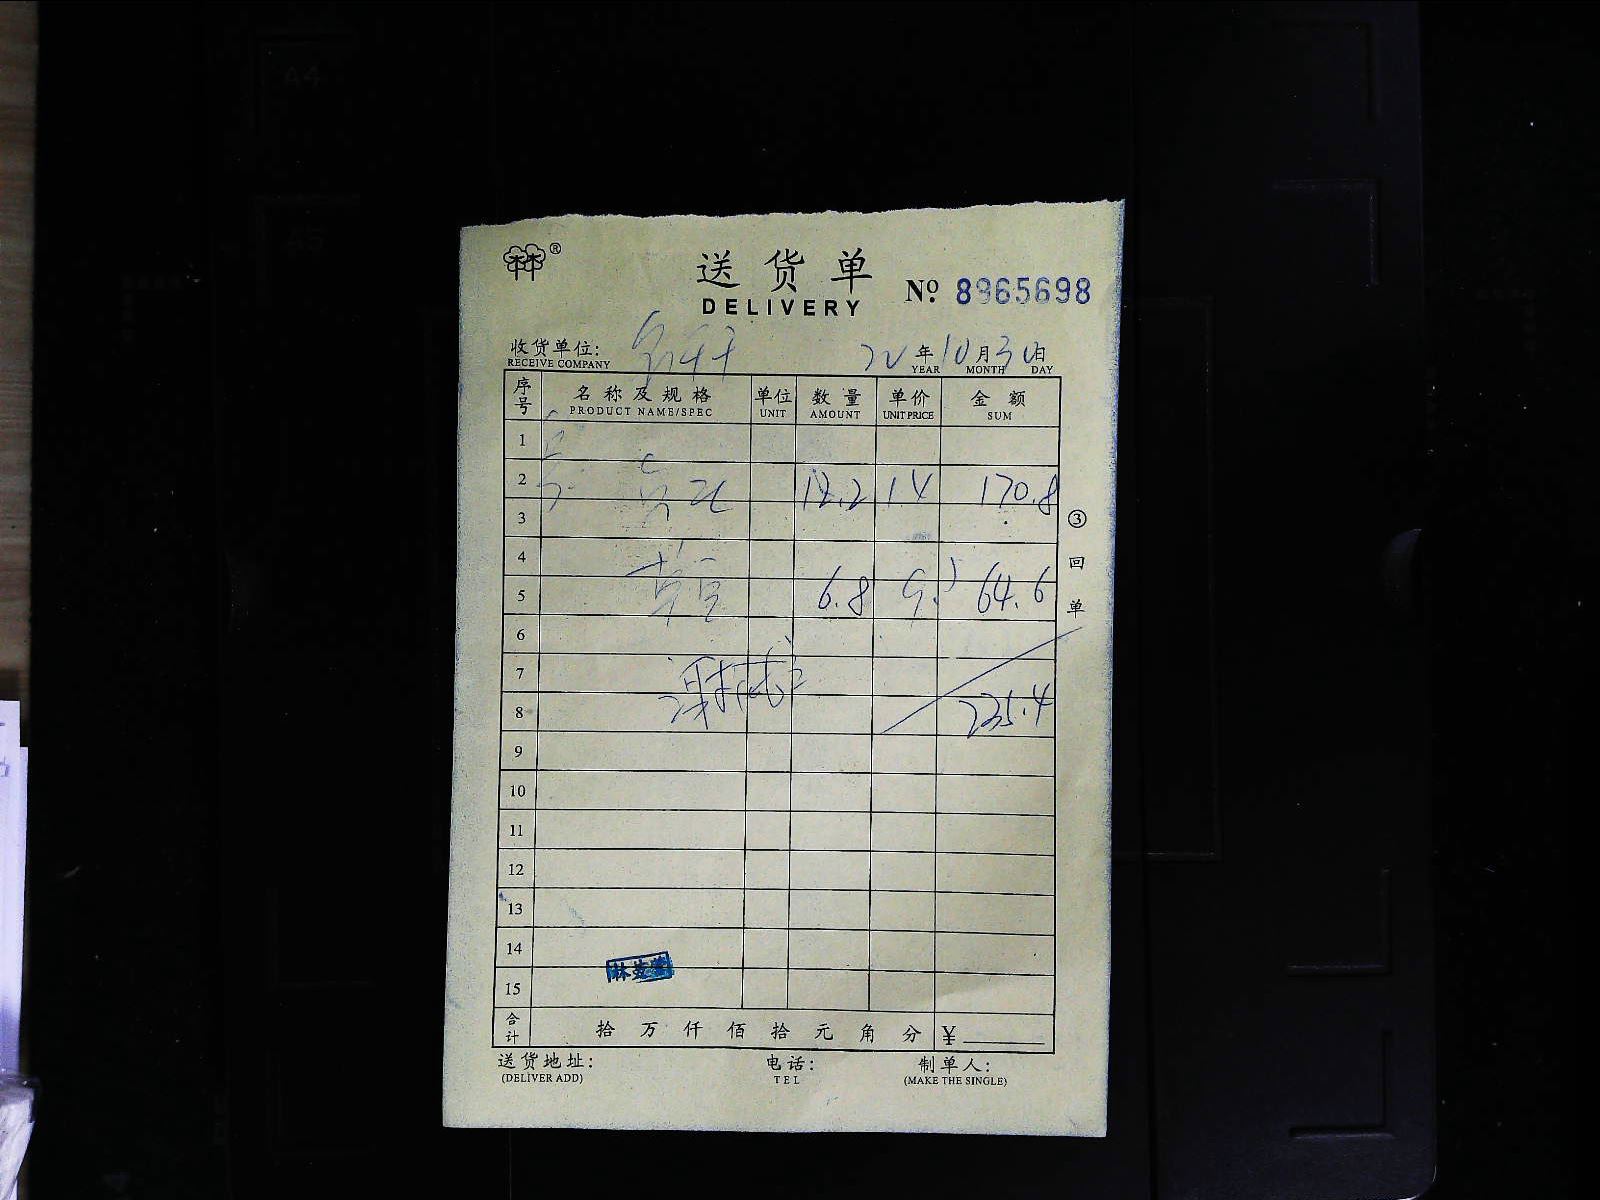 A4
A5
林®
送货单
DELIVERY
№ 8965698
收货单位:
RECEIVE COMPANY
22 年 10 月 30 日
YEAR MONTH DAY
序号 名称及规格 单位 数量 单价 金额
PRODUCT NAME/SPEC UNIT AMOUNT UNIT PRICE SUM
1
2 12.2 14 170.8
3
4
5 6.8 9.5 64.6
6
7
8 235.4
9
10
11
12
13
14
15
③回单
合计 拾 万 仟 佰 拾 元 角 分 ¥
送货地址: 电话: 制单人:
(DELIVER ADD) TEL (MAKE THE SINGLE)